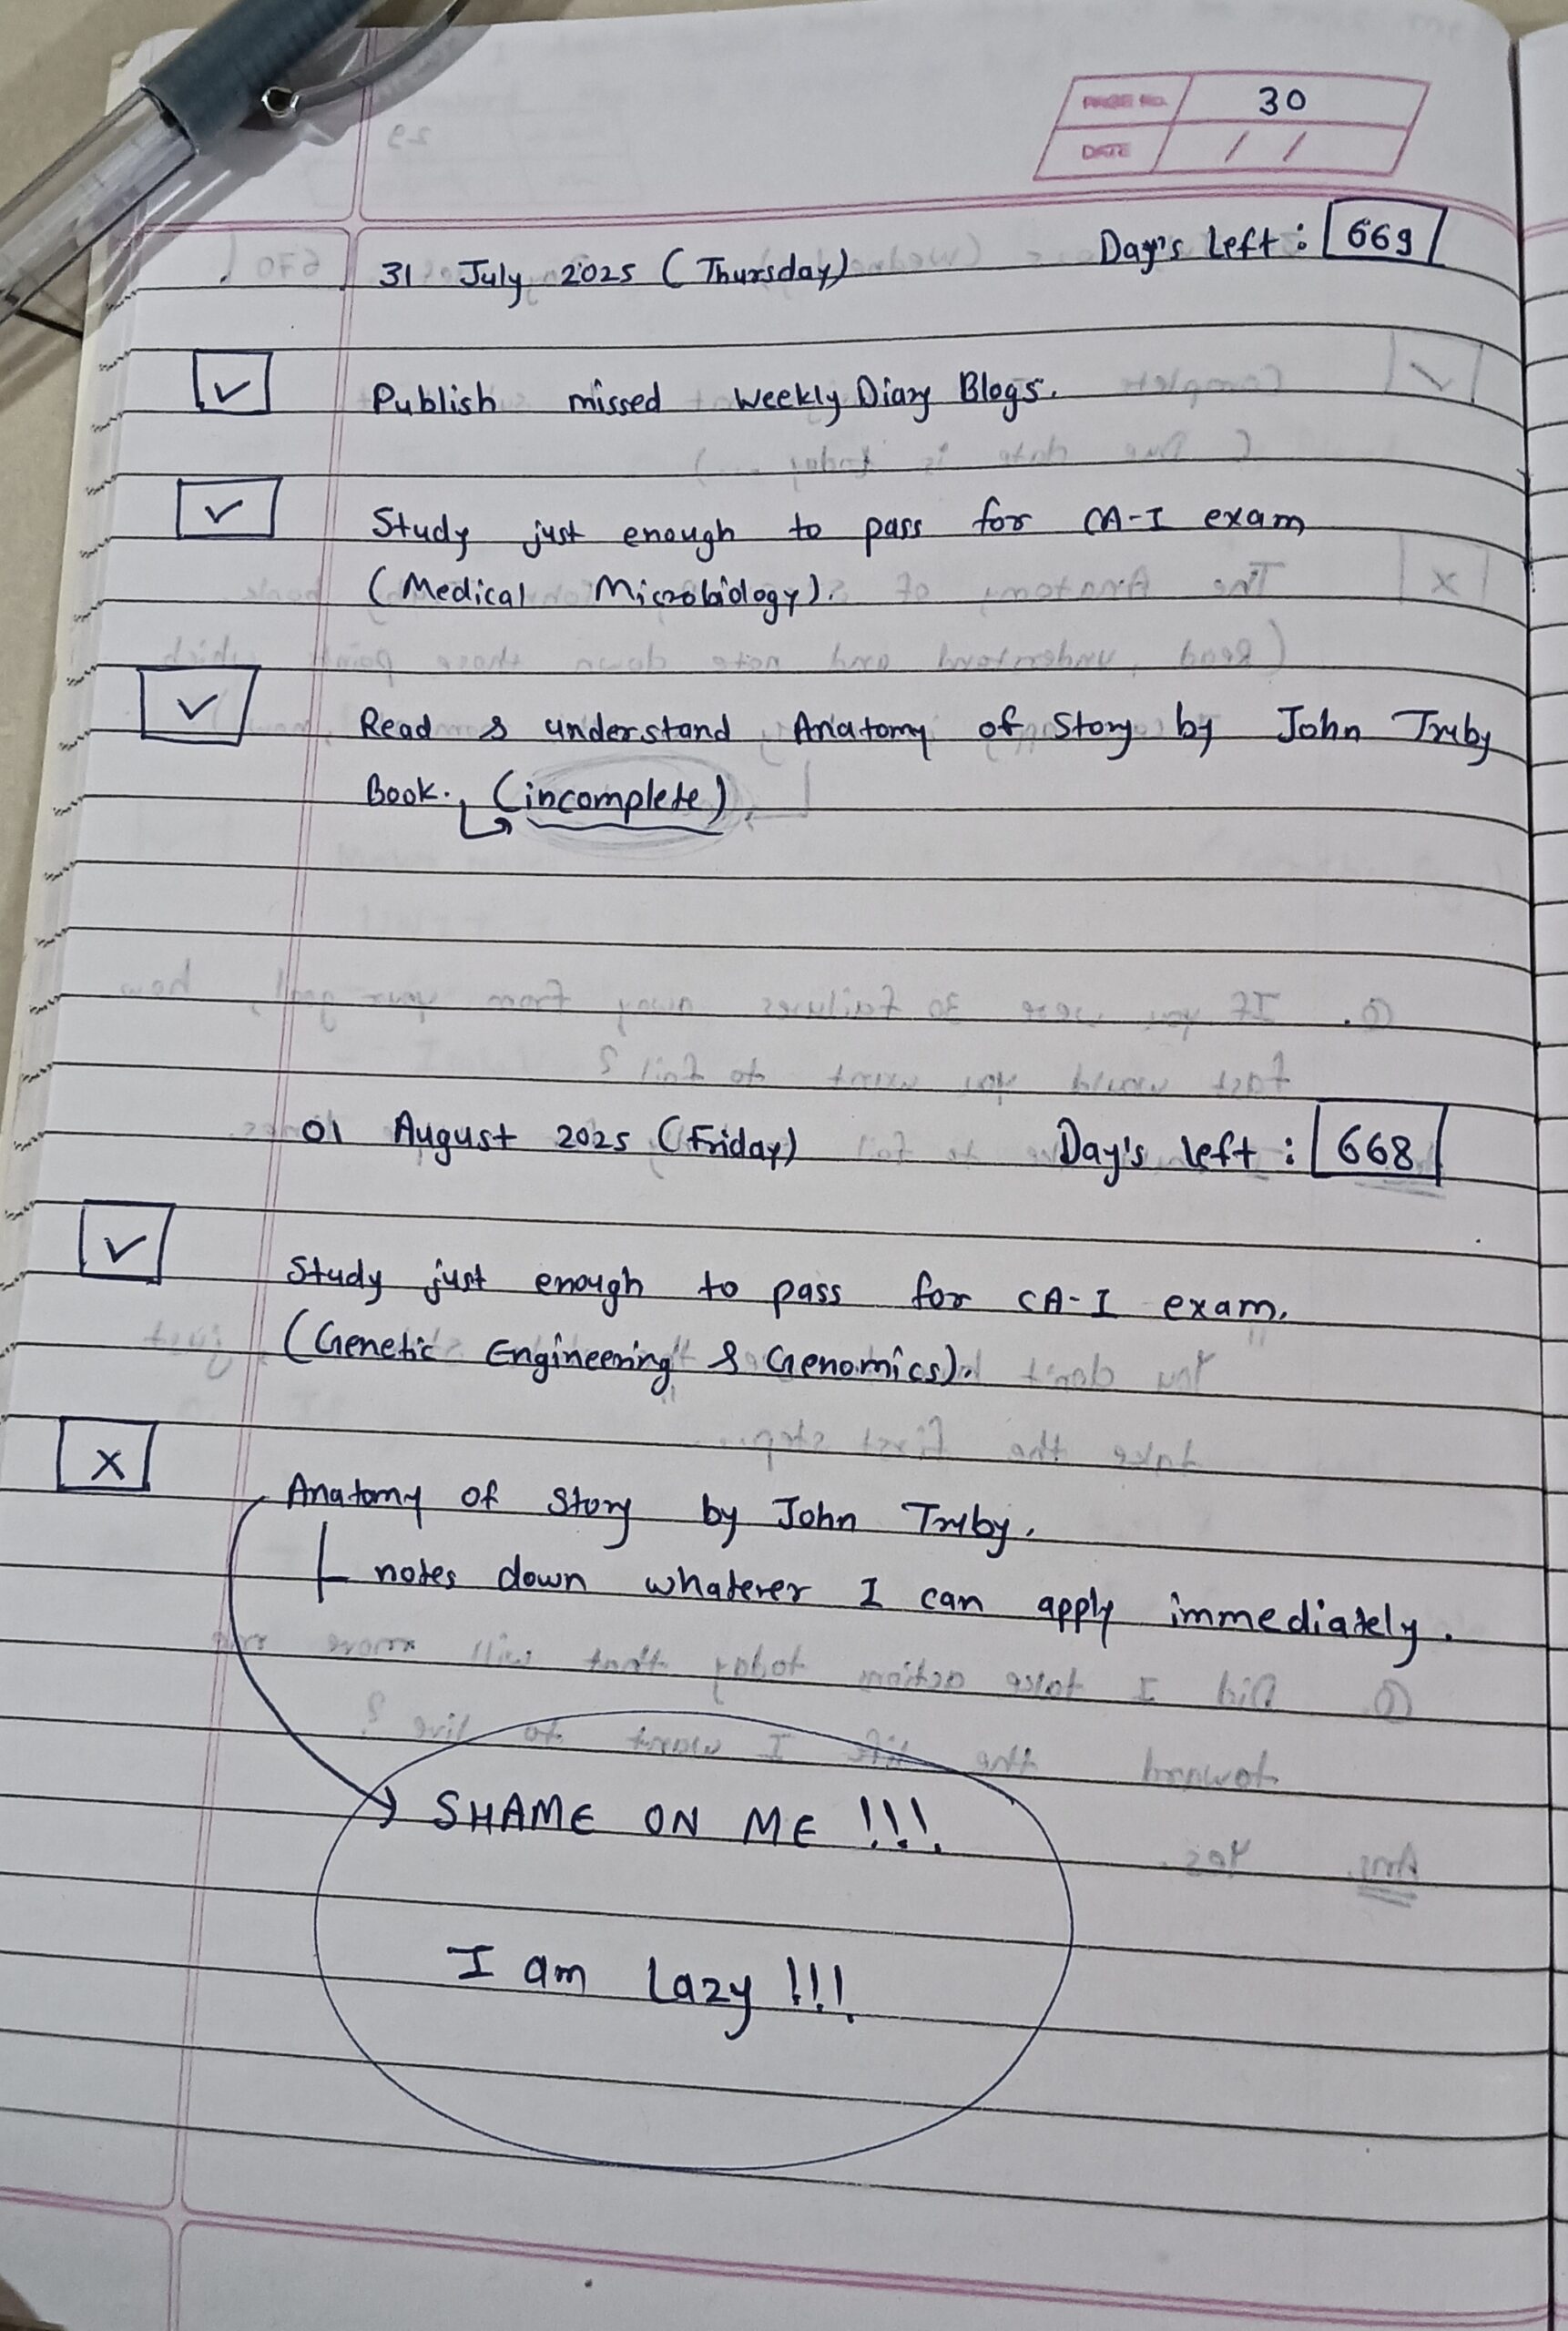 PAGE NO. 30
DATE / /
31 July 2025 (Thursday) Day's Left : 669
✓ Publish missed weekly Diary Blogs.
✓ Study just enough to pass for CA-I exam
(Medical Microbiology).
✓ Read & understand Anatomy of Story by John Truby
Book. (incomplete).
01 August 2025 (Friday) Day's left : 668
✓ Study just enough to pass for CA-I exam.
(Genetic Engineering & Genomics).
X Anatomy of Story by John Truby.
notes down whatever I can apply immediately.
SHAME ON ME !!!
I am Lazy !!!